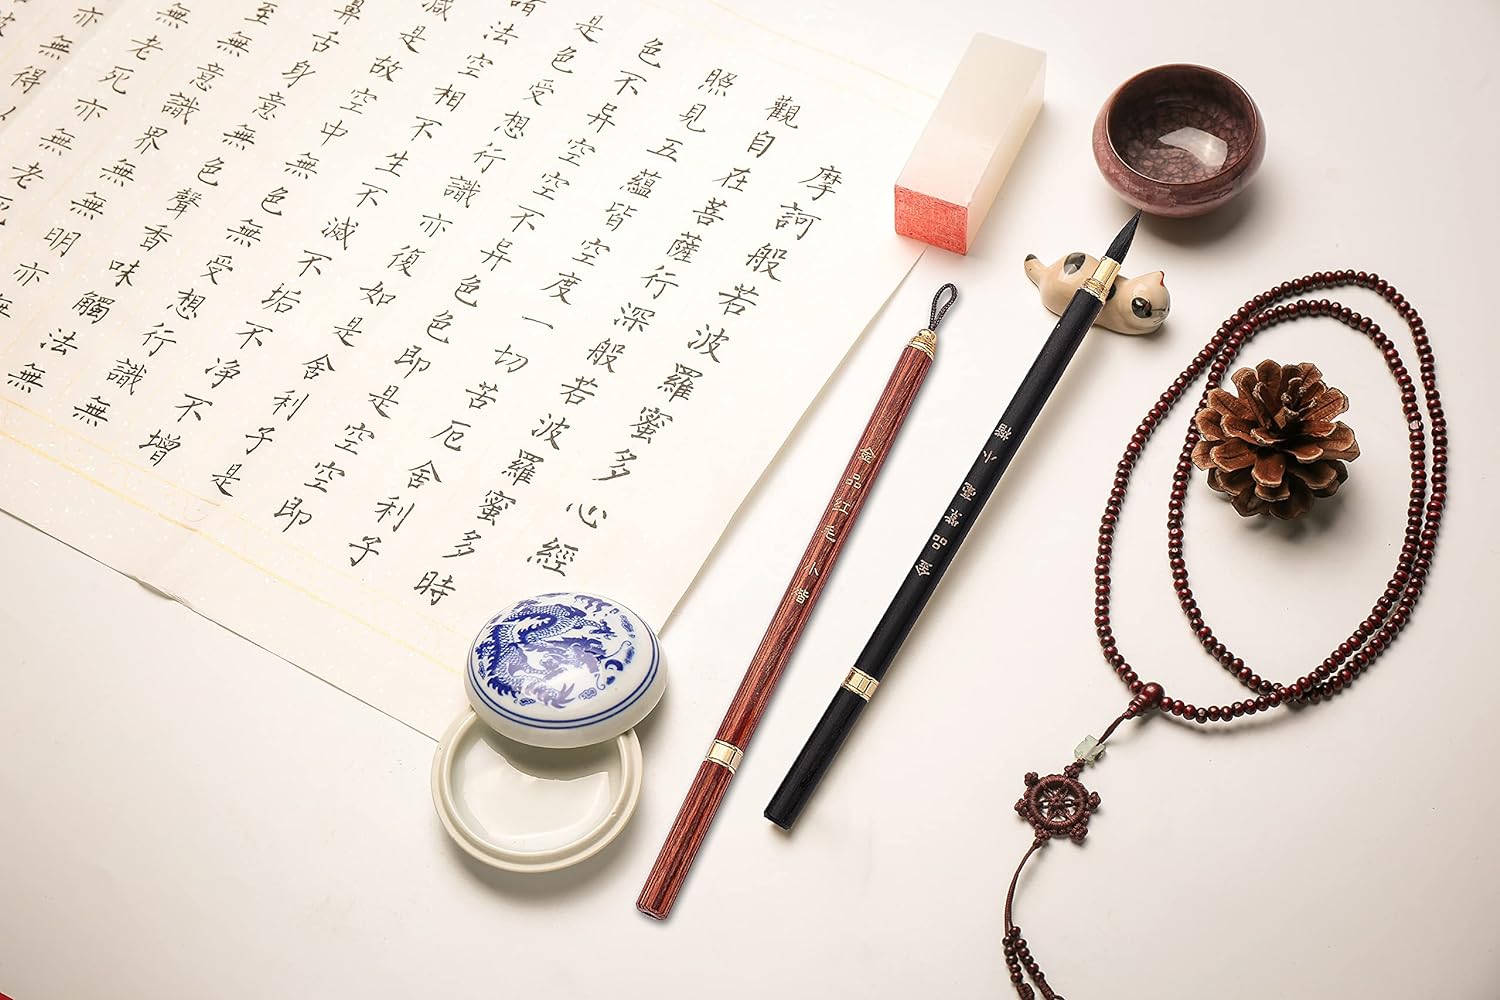 摩訶般若波羅蜜多心經
觀自在菩薩行深般若波羅蜜多時
照見五蘊皆空度一切苦厄舍利子
色不异空空不异色色即是空空即
是色受想行識亦復如是舍利子是
法空相不生不滅不垢不净不增
減是故空中無色無受想行識無
鼻舌身意無色聲香味觸法無
至無意識界無無明亦無
無老死亦無老死
亦無得
金品紅毛小楷
金品紫毫小楷